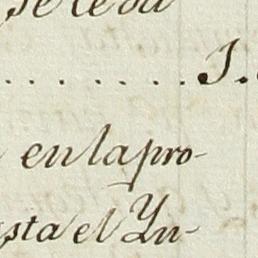 se le da
........ I.
en la pro-
sta el Yn-